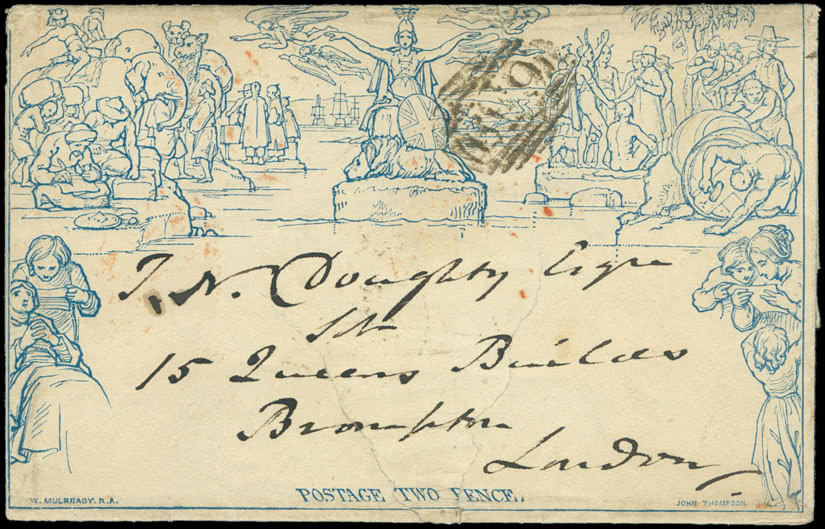 T. N. Doughty Esqre
15 Queens Buildgs
Brompton
London
POSTAGE TWO PENCE.
W. MULREADY. R.A.
JOHN THOMPSON